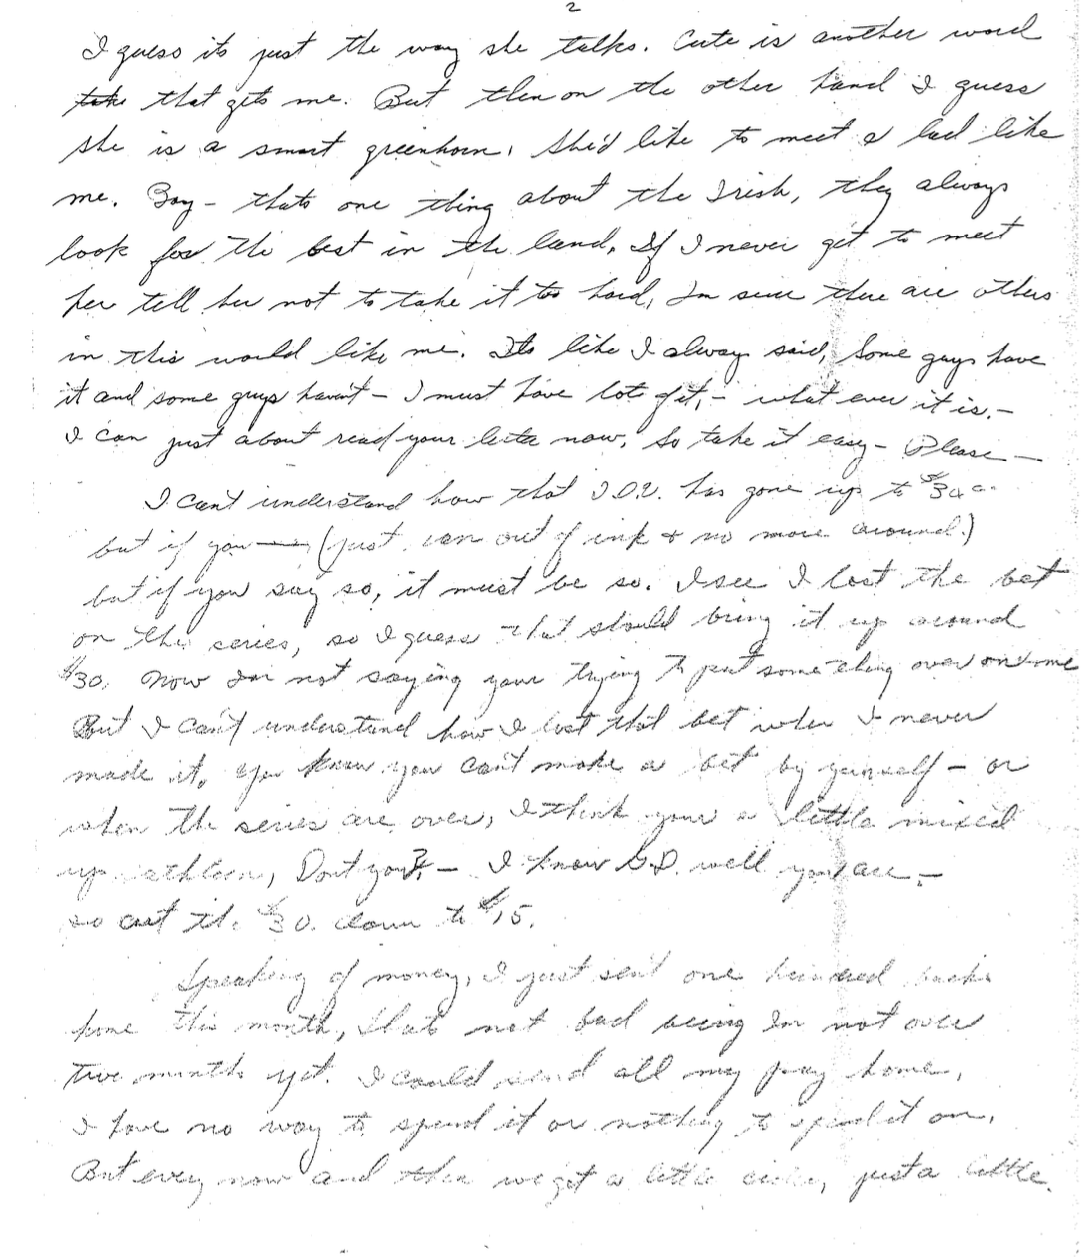 2
I guess its just the way she talks. Cute is another word
take that gets me. But then on the other hand I guess
she is a smart greenhorn. She'd like to meet a lad like
me. Boy - thats one thing about the Irish, they always
look for the best in the land. If I never get to meet
her tell her not to take it too hard, Im sure there are others
in this would like me. Its like I always said, Some guys have
it and some guys havn't - I must have lots of it, - what ever it is. -
I can just about read your letter now. So take it easy - Please -
I can't understand how that I.O.U. has gone up to $34
but if you — (just ran out of ink + no more around.)
but if you say so, it must be so. I see I lost the bet
on the series, so I guess that should bring it up around
$30. Now Im not saying your trying to put something over on me
But I can't understand how I lost that bet when I never
made it. You know you can't make a bet by yourself - or
when the series are over, I think your a little mixed
up, Dont you? - I know G.D. well you are. -
so cut the $30. down to $15.
Speaking of money, I just sent one hundred bucks
home this month, thats not bad being Im not over
two months yet. I could send all my pay home,
I have no way to spend it or nothing to spend it on.
But every now and then we get a little, just a little.